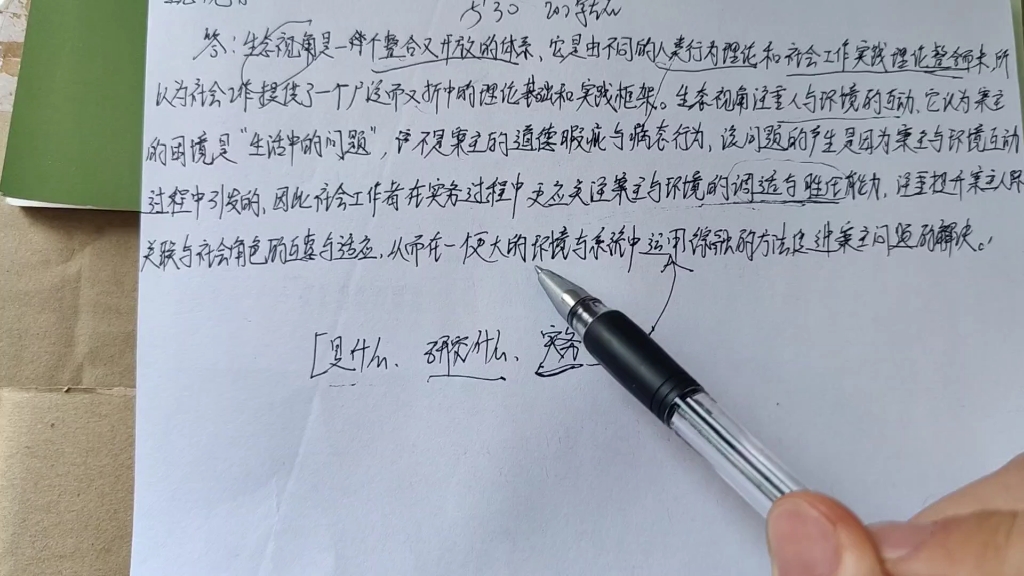 答：生态视角是一种个整合又开放的体系，它是由不同的人类行为理论和社会工作实践理论整合而来，所
以为社会工作提供了一个广泛而又折中的理论基础和实践框架。生态视角注重人与环境的互动，它认为案主
的困境是“生活中的问题”，该不是案主的道德瑕疵与病态行为，该问题的产生是因为案主与环境互动
过程中引发的，因此社会工作者在实务过程中更应关注案主与环境的调适与胜任能力，注重提升案主人际
关联与社会角色的互惠与适应，从而在一个更大的环境与系统中运用综融的方法促进案主问题的解决。
是什么、研究什么、实务